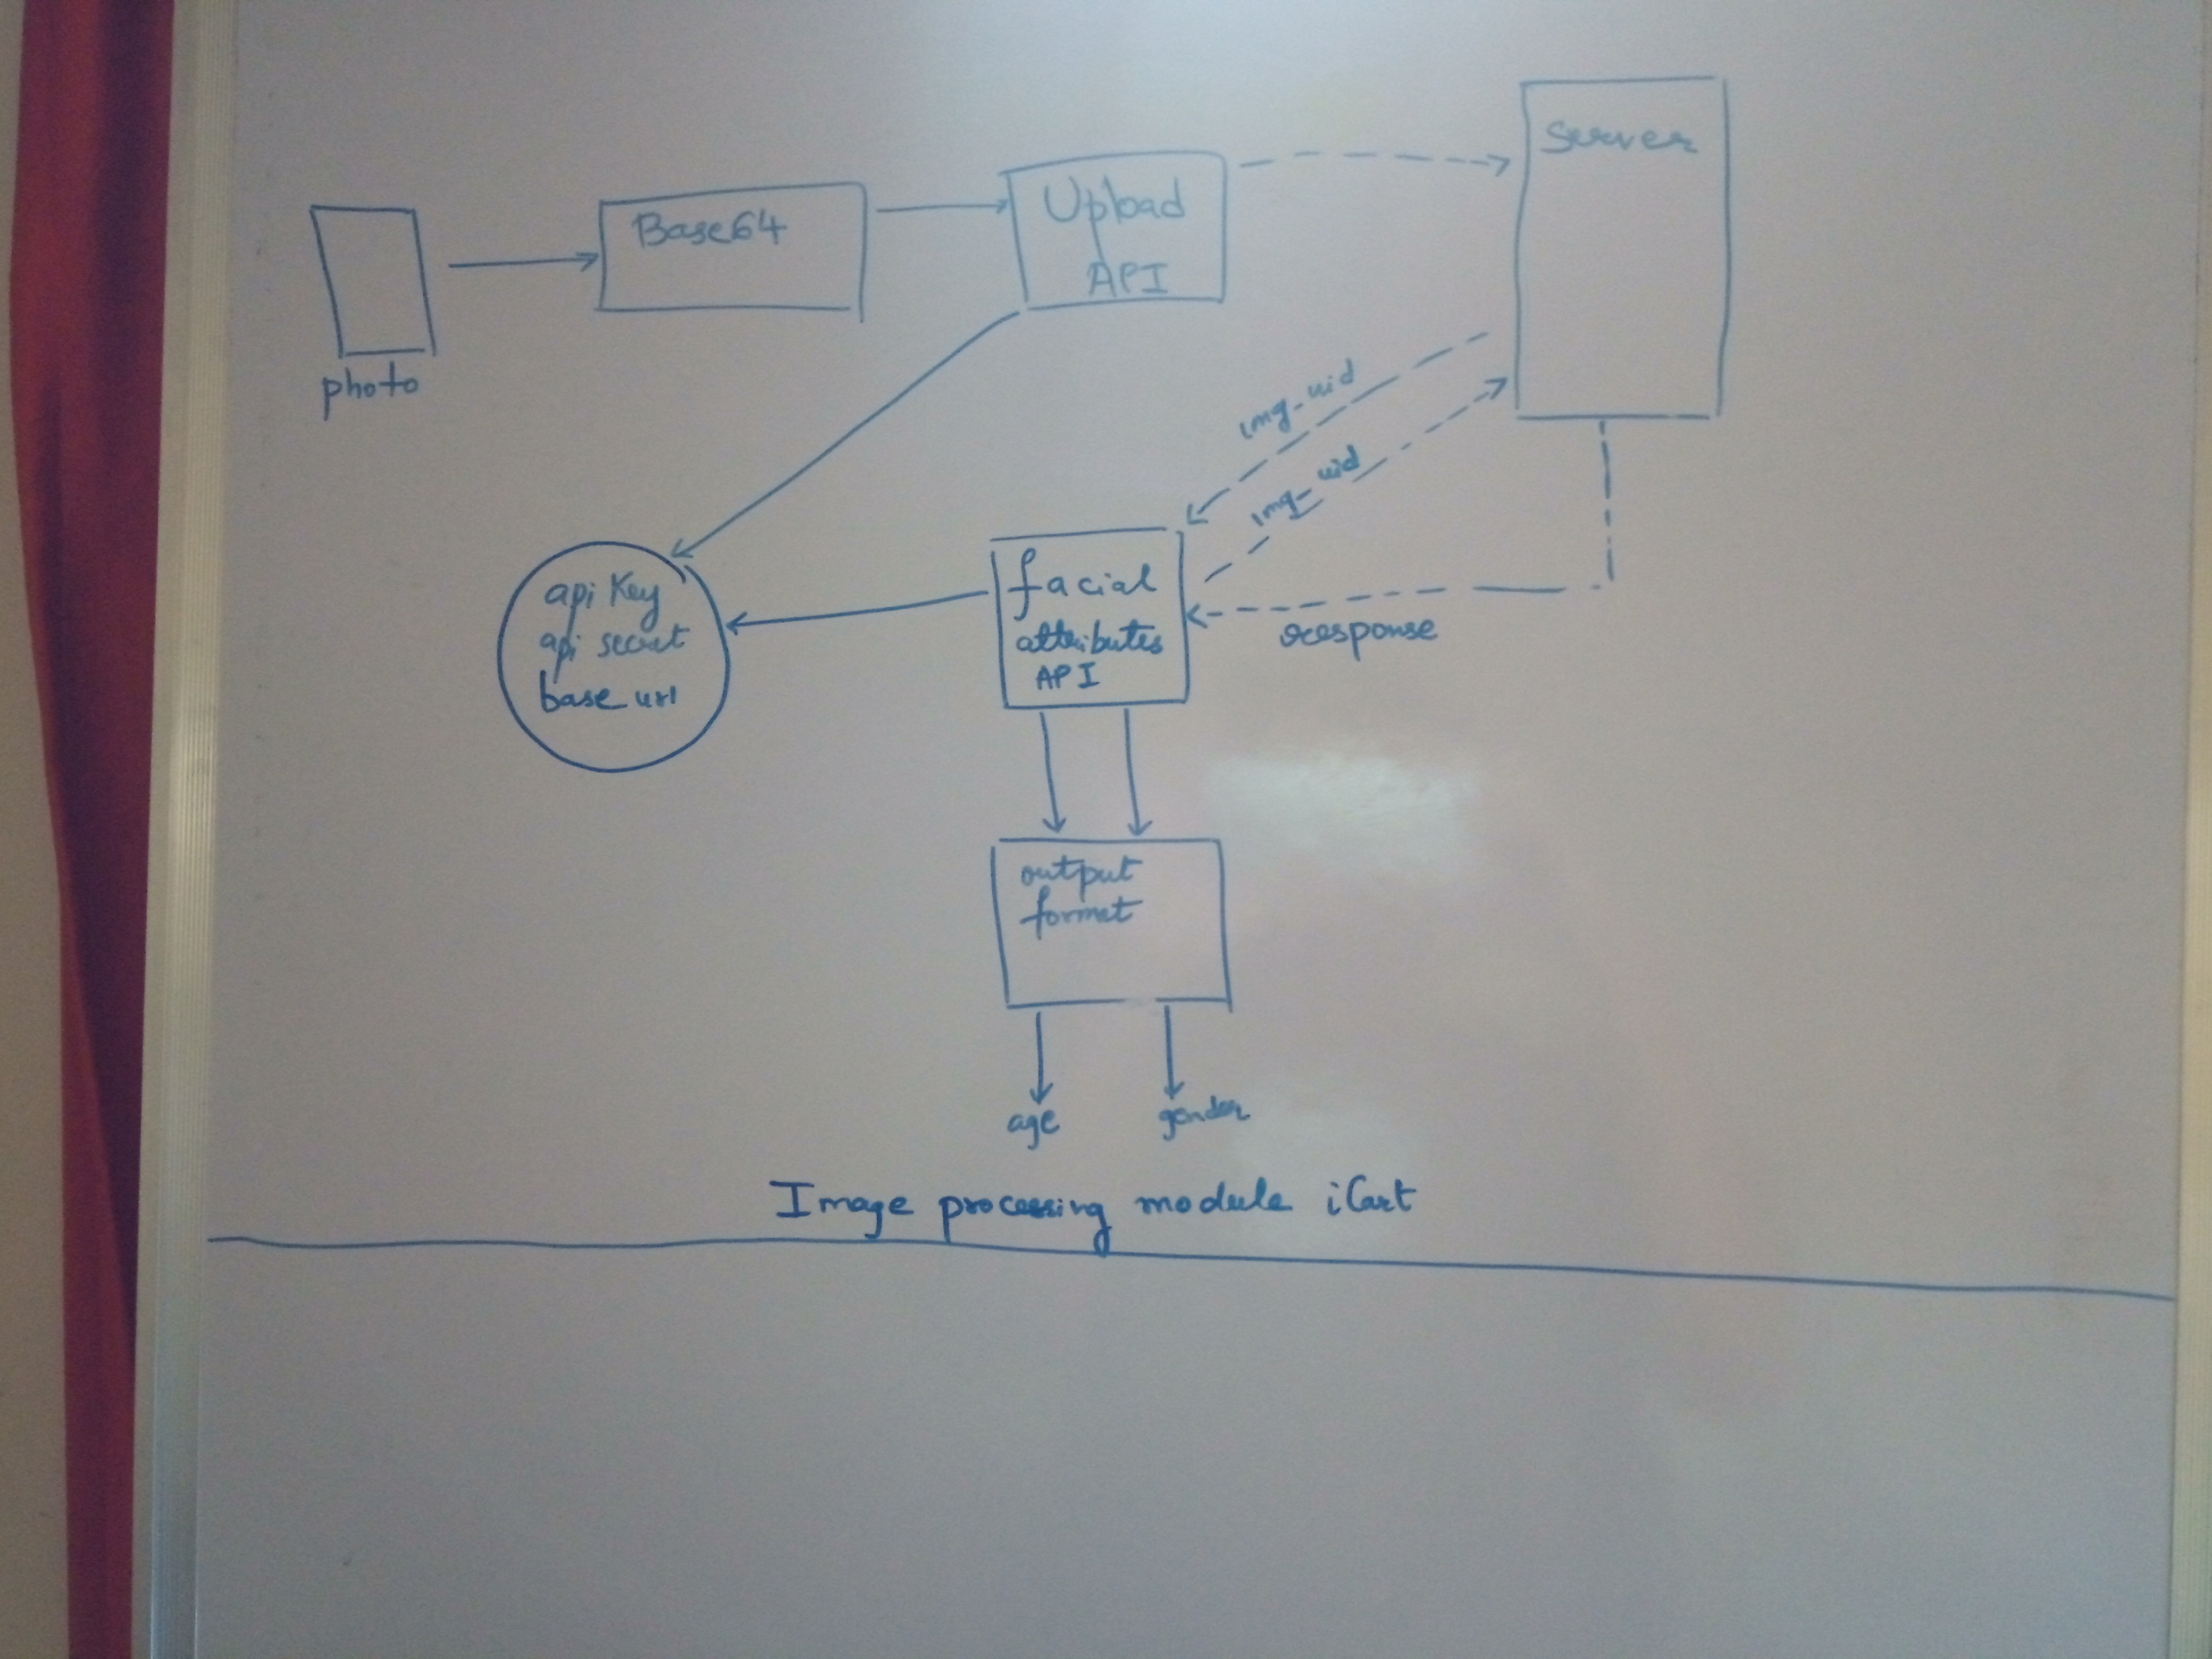 Server
Upload
API
Base64
photo
img_uid
img_uid
api Key
api secret
base url
facial
attributes
API
response
output
format
age
gender
Image processing module iCart